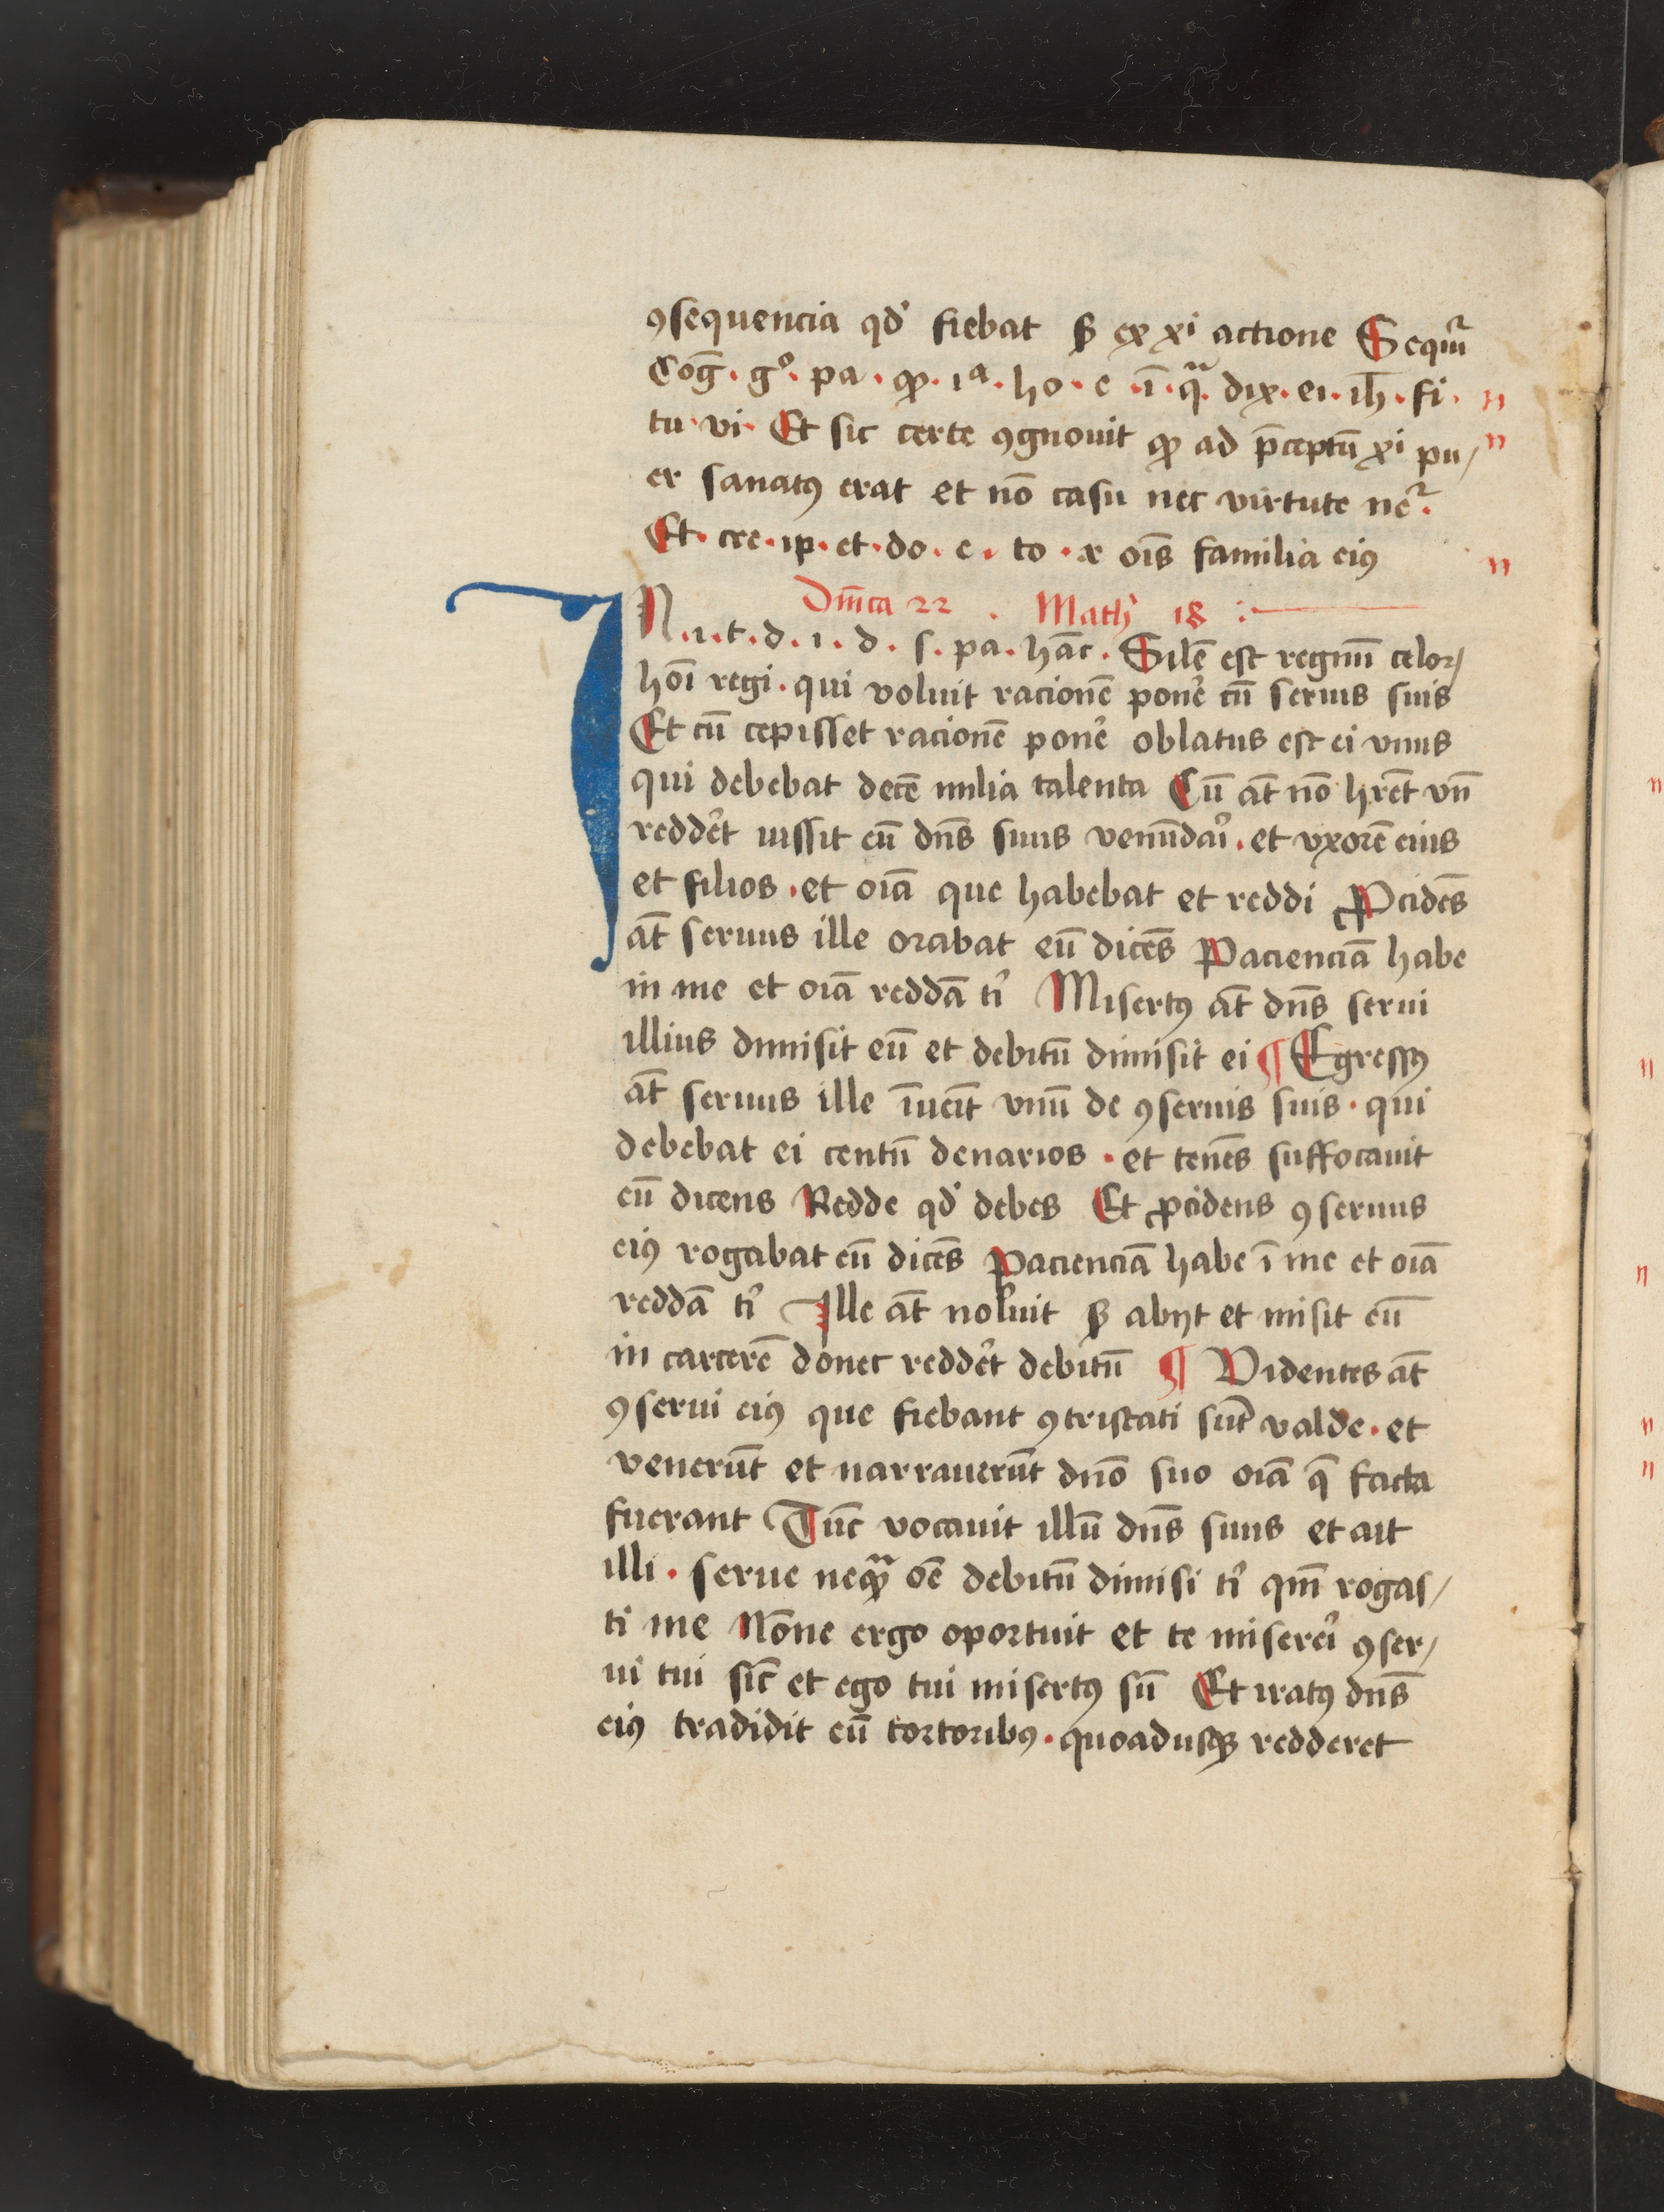 ꝯsequencia qd' fiebat sꝫ ex xi actione Sequit᷑
Cog̅ · gº · pa · ꝙ · iª · ho · e · i̅ · qᵃ · dix · ei · ih̅ · fi ·
tu · vi · Et sic certe ꝯgnouit ꝙ ad p̅ceptu̅ xi pu/
er sanatꝰ erat et no̅ casu nec virtute ne᷑ ·
Et · cre · ip · et · do · e · to · x oi̅s familia eiꝰ
Dm̅ca 22 · Math' 18 :
IN · i · t · d · i · d · s · pa · ha̅c · Sil̅e est regnu̅ celoꝝ
ho̅i regi · qui voluit racione̅ pone͛ cu̅ seruis suis
Et cu̅ cepisset racione̅ pone͛ oblatus est ei vnus
qui debebat dece̅ milia talenta Cu̅ at̅ no̅ hr̅et vn̅
redde͛t iussit eu̅ dn̅s suus venu̅dari͛ · et vxore̅ eius
et filios · et oi̅a que habebat et reddi Ꝓcide̅s
at̅ seruus ille orabat eu̅ dice̅s Paciencia̅ habe
in me et oi̅a redda̅ ti͛ Misertꝰ at̅ dn̅s serui
illius dimisit eu̅ et debitu̅ dimisit ei ¶ Egressꝰ
at̅ seruus ille i̅ueit̅ vnu̅ de ꝯseruis suis · qui
debebat ei centu̅ denarios · et tene̅s suffocauit
eu̅ dicens Redde qd' debes Et ꝓcidens ꝯseruus
eiꝰ rogabat eu̅ dice̅s Paciencia̅ habe i̅ me et oi̅a
redda̅ ti͛ Ille at̅ noluit sꝫ abijt et misit eu̅
in carcere̅ donec redde͛t debitu̅ ¶ Videntes at̅
ꝯserui eiꝰ que fiebant ꝯtristati su̅t valde · et
veneru̅t et narraueru̅t dn̅o suo oi̅a q̅ facta
fuerant Tu̅c vocauit illu̅ dn̅s suus et ait
illi · serue neqᵃꝫ o̅e debitu̅ dimisi ti͛ qm̅ rogas/
ti me No̅ne ergo oportuit et te misere͛i ꝯser/
ui tui sic̅ et ego tui misertꝰ su̅ Et iratꝰ dn̅s
eiꝰ tradidit eu̅ tortoribꝰ · quoadusqꝫ redderet